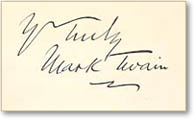 Yr Truly
Mark Twain